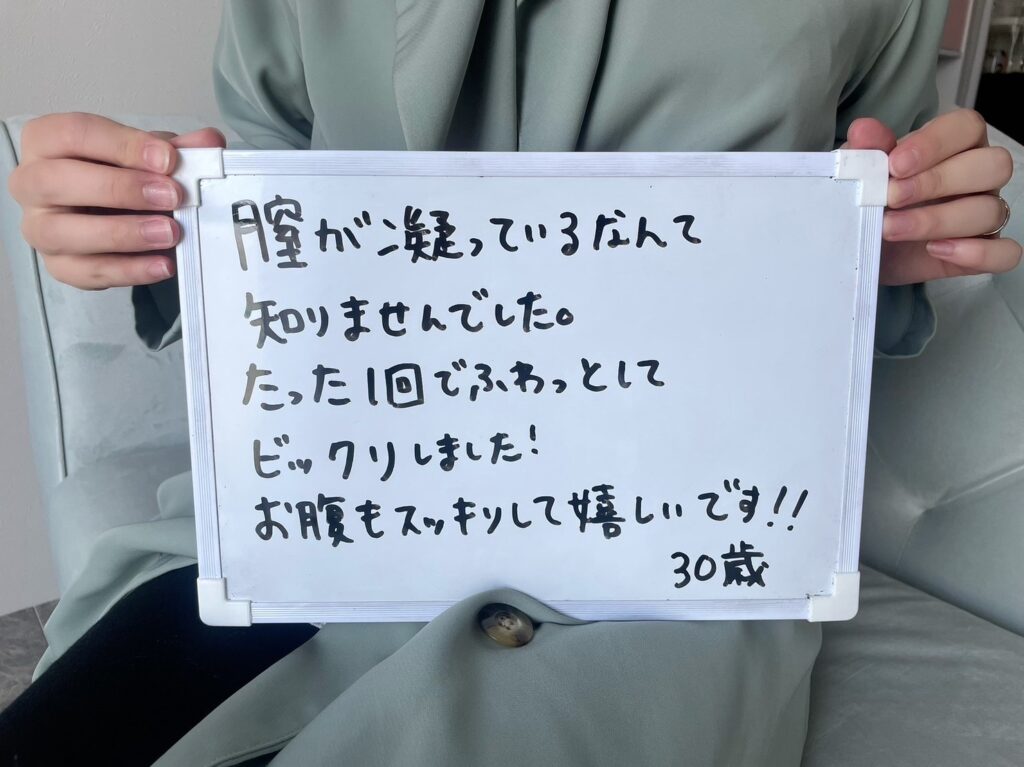 膣が凝っているなんて
知りませんでした。
たった1回でふわっとして
ビックリしました!
お腹もスッキリして嬉しいです!!
30歳